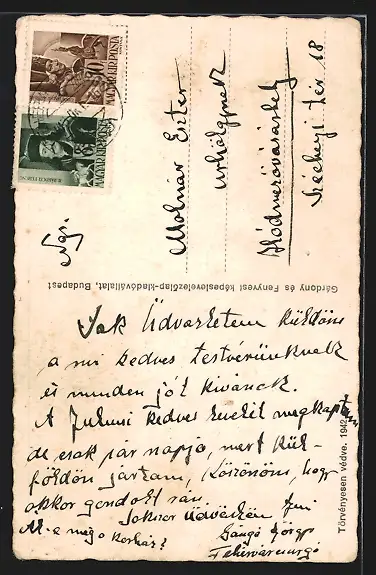 Ngs.
Molnár Eszter
úrhölgynek
Hódmezővásárhely
Széchenyi tér 18
MAGYAR KIR. POSTA
MAGYAR KIR. POSTA
II. RÁKÓCZI FERENC
Gárdony és Fenyvesi képeslevelezőlap-kiadóvállalat, Budapest
Törvényesen védve. 1942.
Sok Üdvözletem küldöm
a mi kedves testvérünknek
és minden jót kívánok.
A kedves megkaptam
de csak pár napja, mert kül-
földön jártam, köszönöm, hogy
akkor gondolt rám.
Sokszor Üdvözlöm
Gangó György
Fehérvárcsurgó